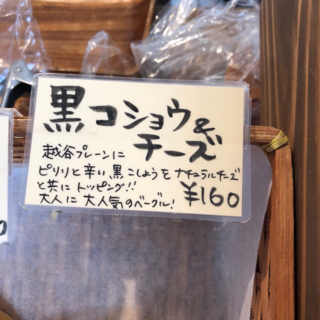 黒コショウ&
チーズ
越谷プレーンに
ピリリと辛い黒こしょうをナチュラルチーズ
と共にトッピング!!
大人に大人気のベーグル!
¥160